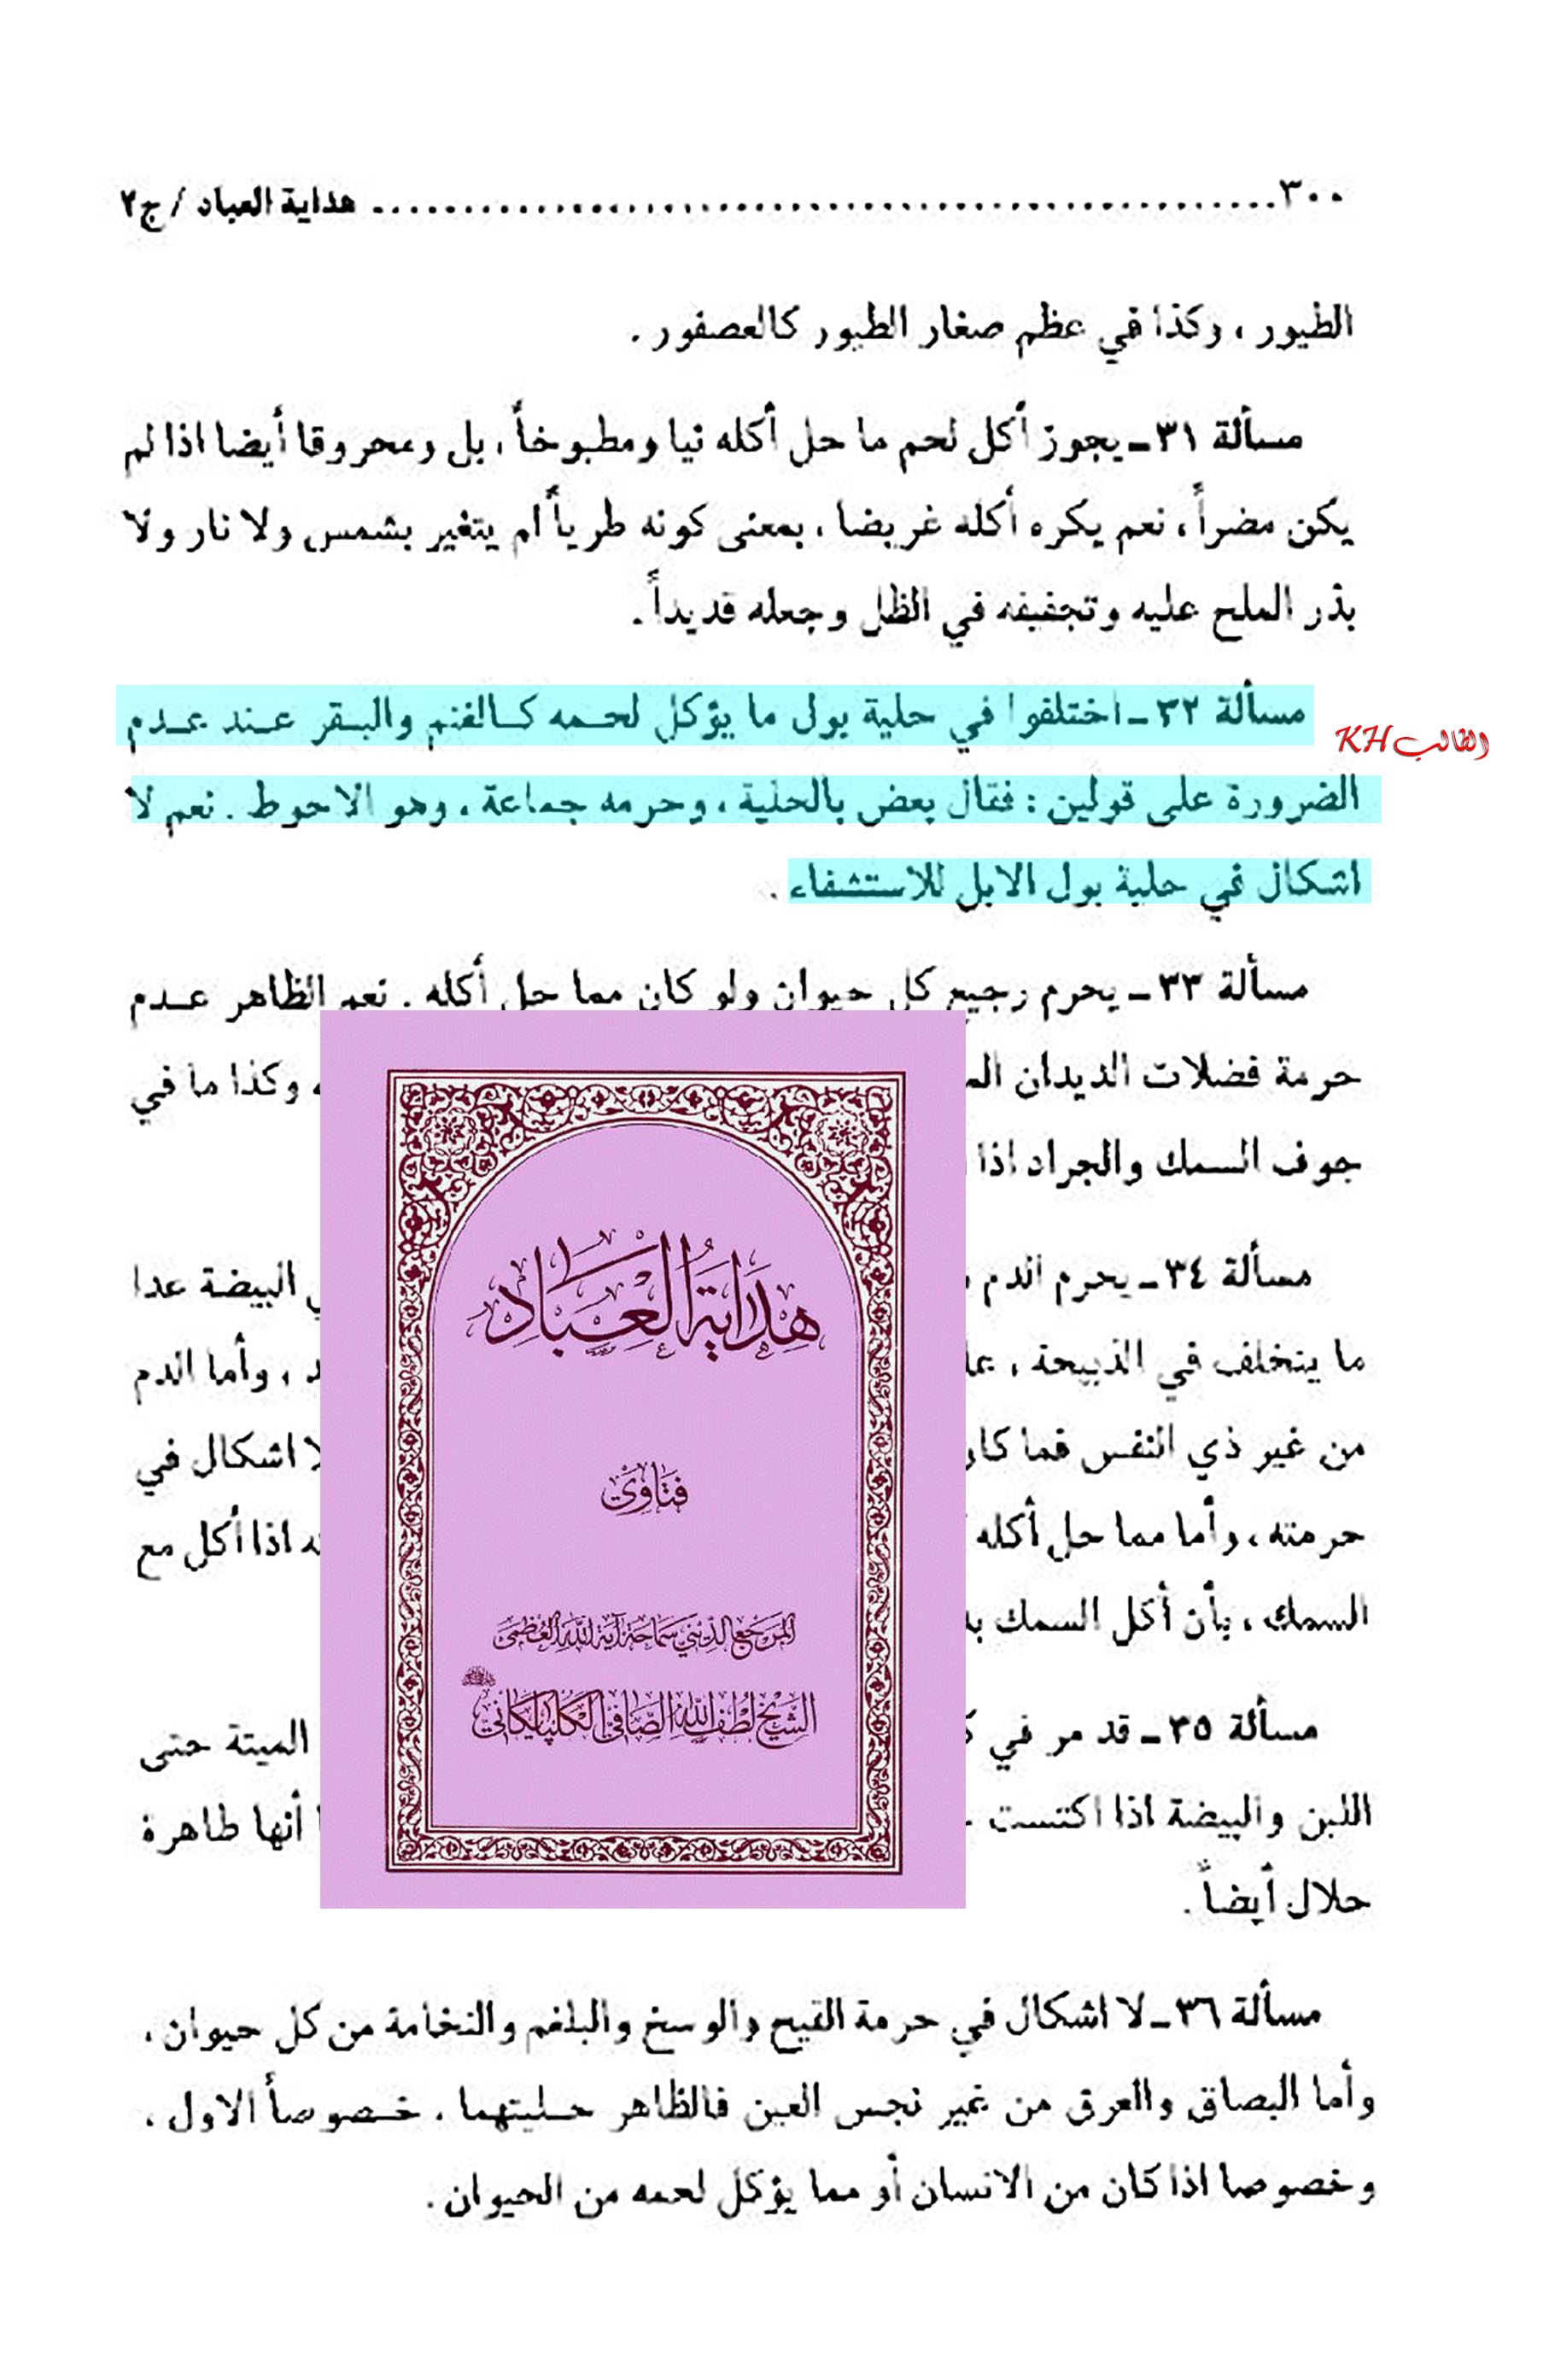 ٣٠٠ ........................ هداية العباد / ج٢
الطيور ، وكذا في عظم صغار الطيور كالعصفور .
مسألة ٣١ ـ يجوز أكل لحم ما حل أكله نيا ومطبوخاً ، بل ومحروقا أيضا اذا لم
يكن مضراً ، نعم يكره أكله غريضا ، بمعنى كونه طرياً لم يتغير بشمس ولا نار ولا
بذر الملح عليه وتجفيفه في الظل وجعله قديداً .
مسألة ٣٢ ـ اختلفوا في حلية بول ما يؤكل لحمه كالغنم والبقر عند عدم
الطالب KH
الضرورة على قولين : فقال بعض بالحلية ، وحرمه جماعة ، وهو الاحوط . نعم لا
اشكال في حلية بول الابل للاستشفاء .
مسألة ٣٣ ـ يحرم رجيع كل حيوان ولو كان مما حل أكله . نعم الظاهر عدم
حرمة فضلات الديدان وكذا ما في
جوف السمك والجراد اذا
مسألة ٣٤ ـ يحرم الدم البيضة عدا
ما يتخلف في الذبيحة ، وأما الدم
من غير ذي النفس فما اشكال في
حرمته ، وأما مما حل أكله اذا أكل مع
السمك ، بأن أكل السمك
مسألة ٣٥ ـ قد مر في الميتة حتى
اللبن والبيضة اذا اكتست أنها طاهرة
حلال أيضاً .
هداية العباد
فتاوى
المرجع الديني سماحة آية الله العظمى
الشيخ لطف الله الصافي الگلپايگاني
مسألة ٣٦ ـ لا اشكال في حرمة القيح والوسخ والبلغم والنخامة من كل حيوان ،
وأما البصاق والعرق من غير نجس العين فالظاهر حليتهما ، خصوصاً الاول ،
وخصوصا اذا كان من الانسان أو مما يؤكل لحمه من الحيوان .